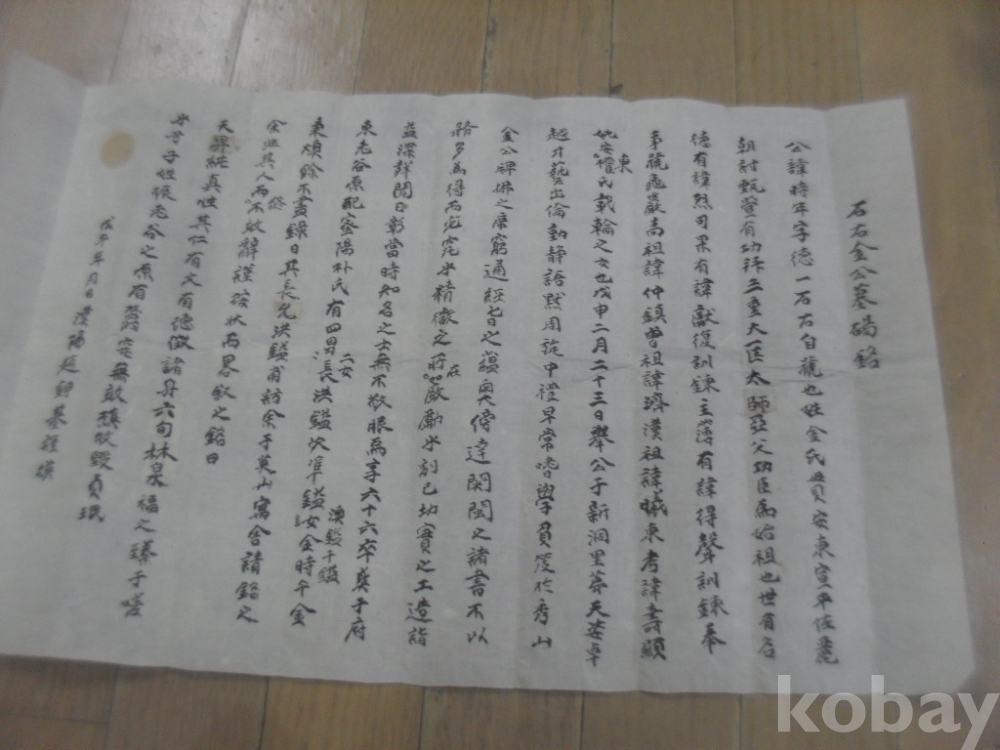 石右金公墓碣銘
公諱時年字德一石右自號也姓金氏貫安東宣平佐麗
朝討甄萱有功拜三重大匡太師亞父功臣爲始祖也世有名
德有諱烈司果有諱獻復訓鍊主簿有諱得聲訓鍊奉
事號龜巖高祖諱仲鎮曾祖諱濟漢祖諱曦東考諱壽顯
妣安東權氏載輪之女也戊申二月二十三日擧公于新洞里第天姿卓
越才藝出倫動靜語默周旋中禮早常嗜學負笈於秀山
金公稗拂之庠窮通經旨之蘊奧傍達関閩之諸書不以
務多爲得而尤究於精微之所在嚴勵水刻已切實之工造詣
益深詳聞日彰當時知名之士無不敬服焉享六十六卒葬于府
東老谷原配密陽朴氏有四男二女長洪鎰次準鎰漢鎰千鎰女金時午金
東煥餘不盡錄日其長允洪鎰甫訪余于英山寓舍請銘之
余非其人而終不敢辭謹按狀而畧敘之銘曰
天畀純眞性其仁有文有德儆諸身六旬林泉福之臻于嗟
乎公子姓振老谷之原有the完無敢頑敗毀貞珉
戊午年月日漢陽趙卿基謹撰
kobay